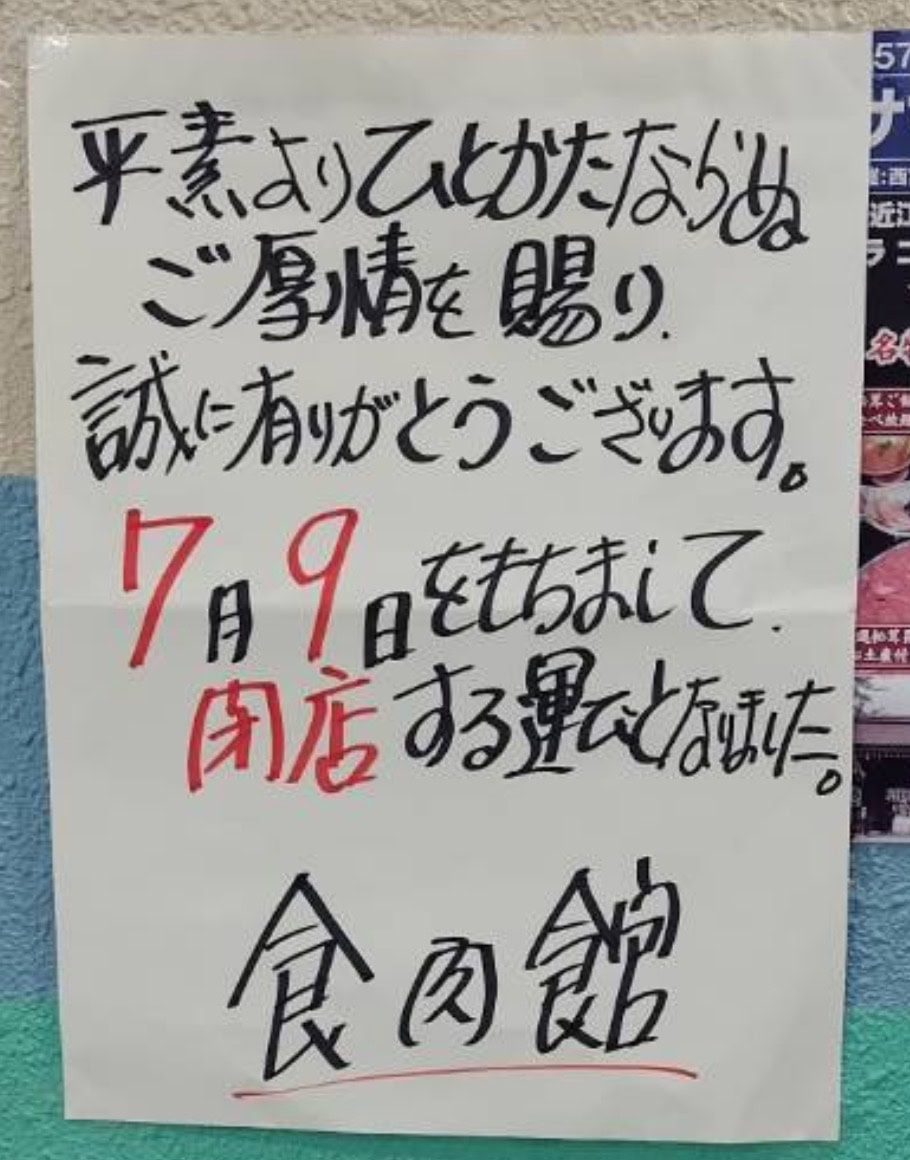 平素よりひとかたならぬ
ご厚情を賜り.
誠に有りがとうございます。
7月9日をもちまして.
閉店する運びとなりました。
食肉館
57
サ
近江
ラ
名物